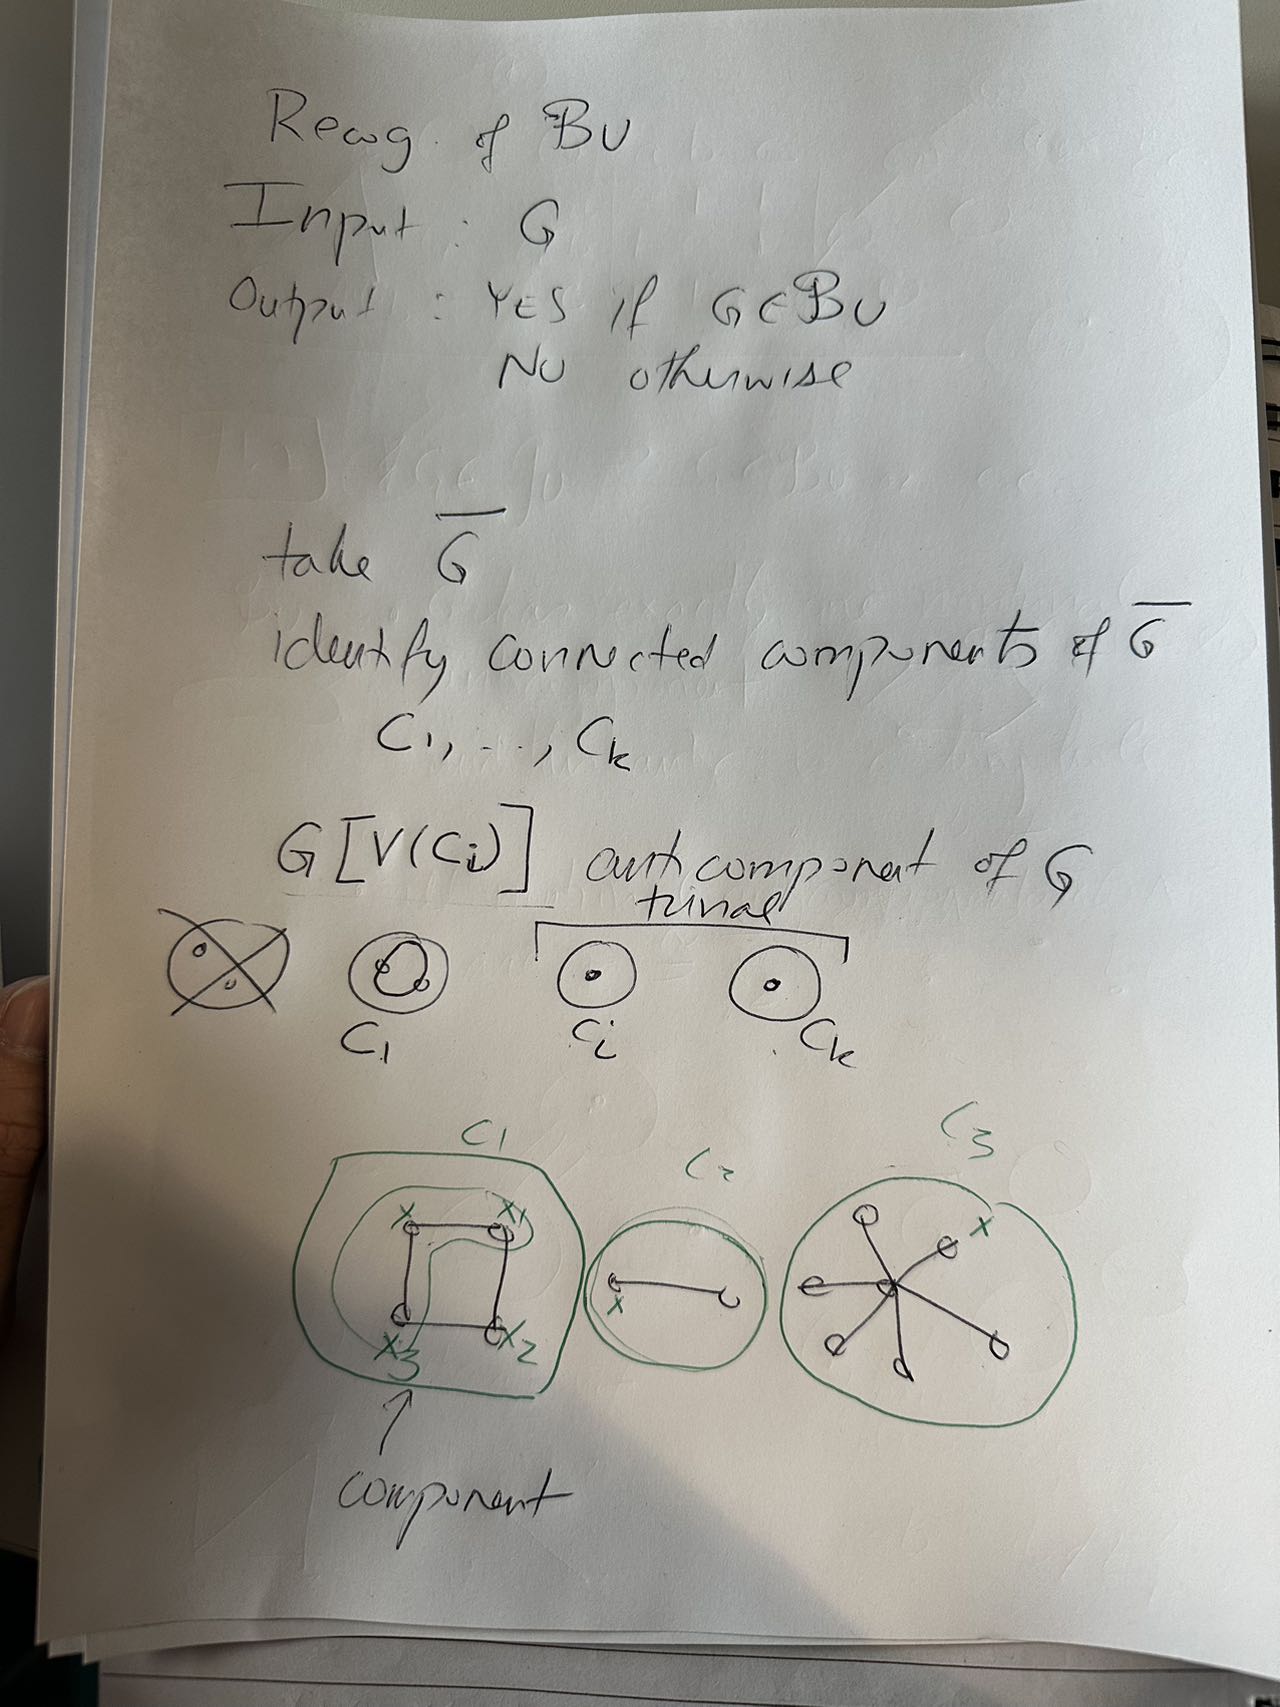 Recog. of BU
Input : G
Output : YES if G∈BU
NO otherwise
take G̅
identify connected components of G̅
C1, ..., Ck
G[V(Ci)] anticomponent of G
trivial
C1 Ci Ck
C1 C2 C3
x x1 x
x
x3 x2
component